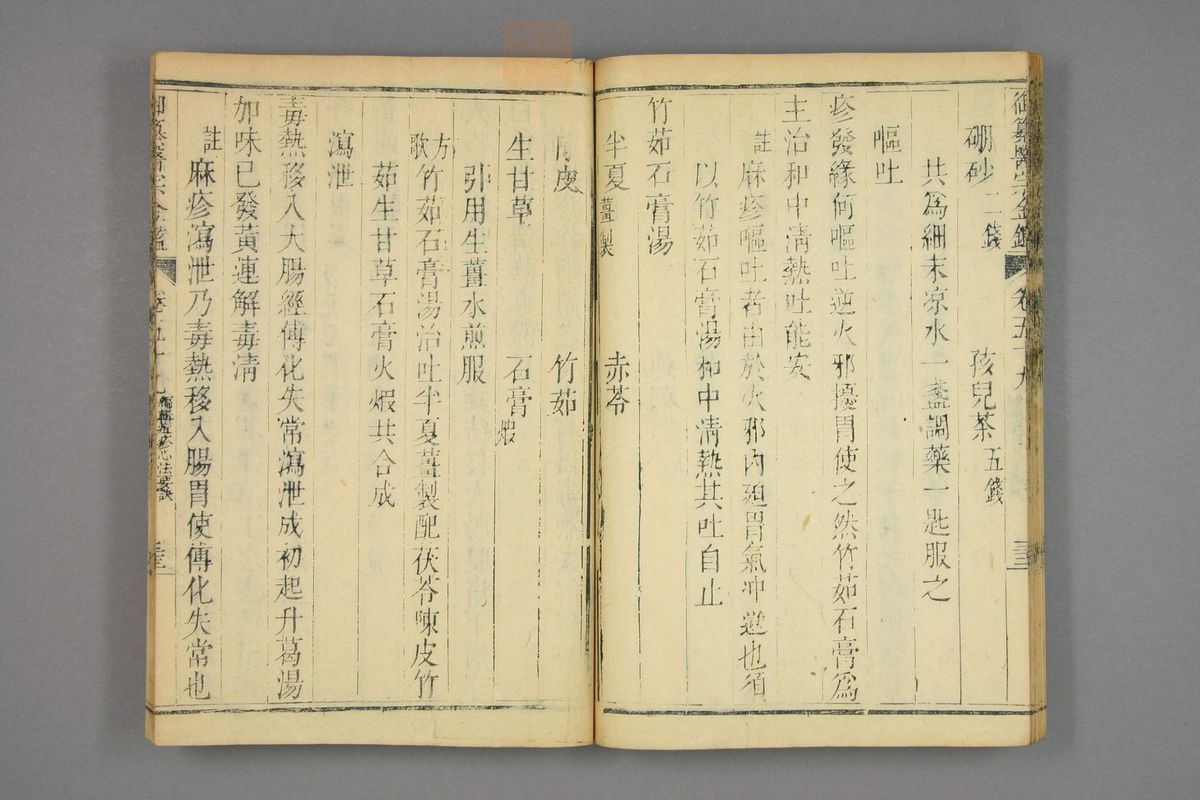 御纂醫宗金鑑 卷五十九 三三
硼砂二錢 孩兒茶五錢
共為細末凉水一盞調藥一匙服之
嘔吐
疹發緣何嘔吐逆火邪擾胃使之然竹茹石膏為
主治和中淸熱吐能安
註 麻疹嘔吐者由於火邪內廹胃氣冲逆也須
以竹茹石膏湯和中淸熱其吐自止
竹茹石膏湯
半夏薑製 赤苓
陳皮 竹茹
生甘草 石膏煅
引用生薑水煎服
方歌 竹茹石膏湯治吐半夏薑製配茯苓陳皮竹
茹生甘草石膏火煅共合成
瀉泄
毒熱移入大腸經傳化失常瀉泄成初起升葛湯
加味已發黃連解毒淸
註 麻疹瀉泄乃毒熱移入腸胃使傳化失常也
御纂醫宗金鑑 卷五十九 編輯痘疹心法要訣 三三